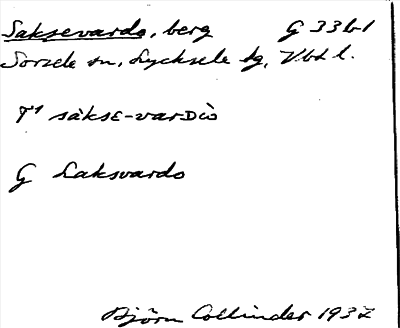 Saksevardo, berg G 33b1
Sorsele sn, Lycksele lg, Vbt l.
sàksɛ-varDù̀
G Laksvardo
Björn Collinder 1937